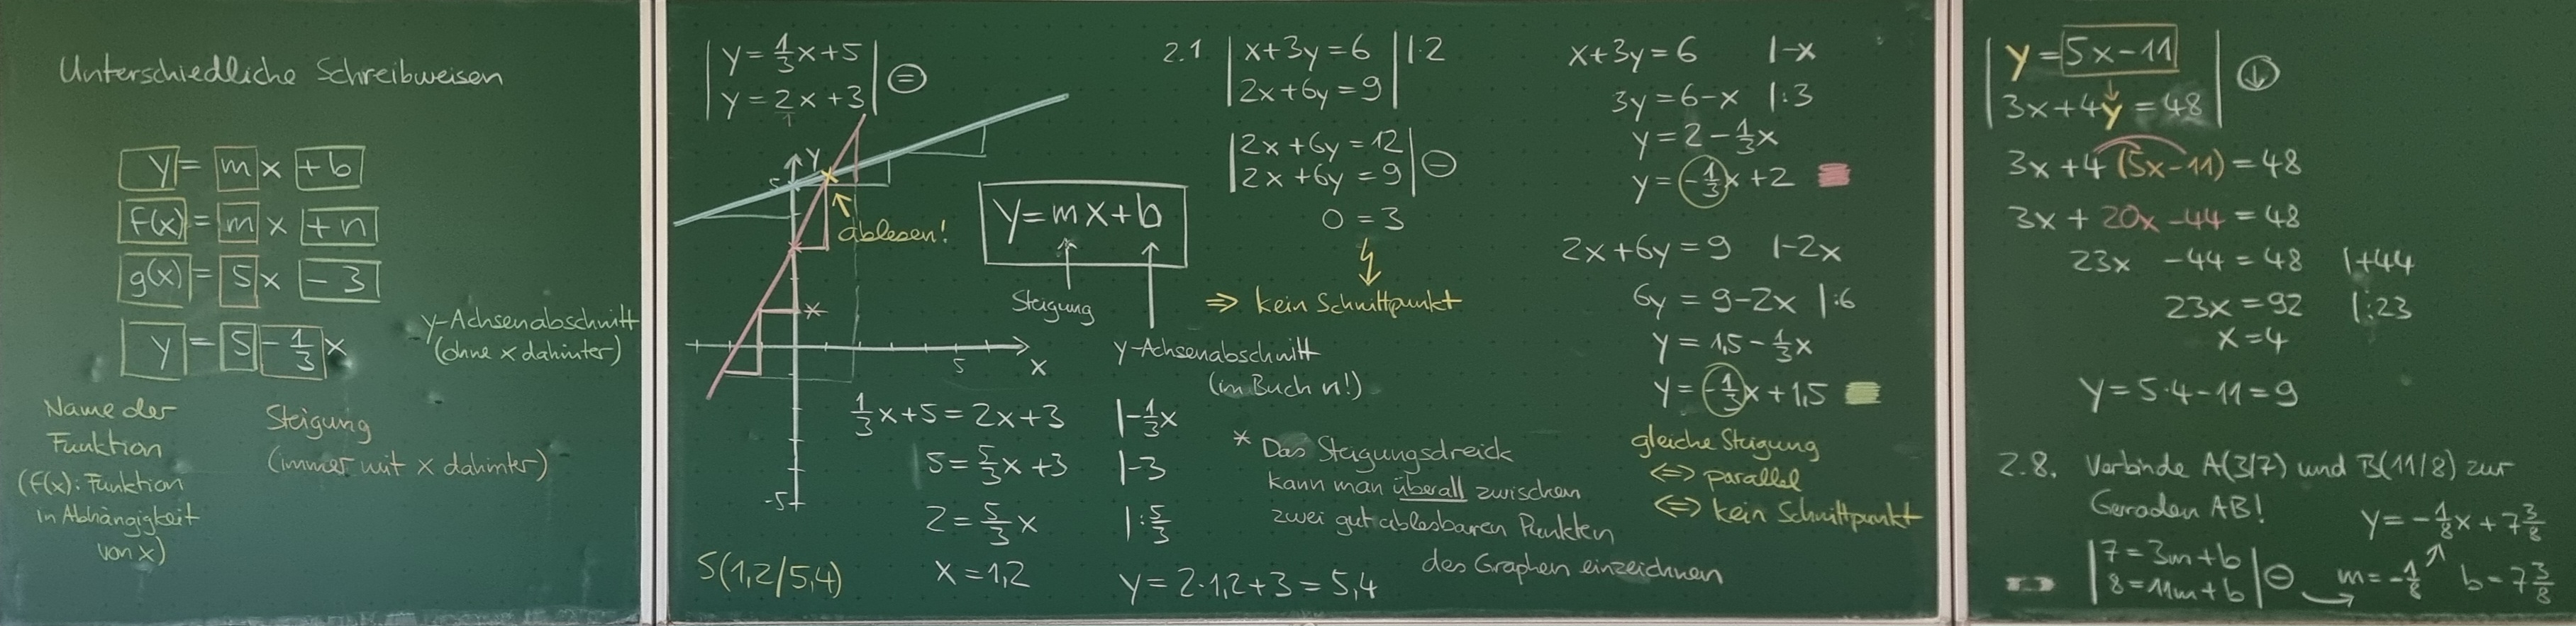 Unterschiedliche Schreibweisen
y = m x + b
f(x) = m x + n
g(x) = 5 x - 3
y = 5 - 1/3 x
y-Achsenabschnitt
(ohne x dahinter)
Name der
Funktion
(f(x): Funktion
in Abhängigkeit
von x)
Steigung
(immer mit x dahinter)
| y = 1/3 x + 5 |
| y = 2x + 3 | (=)
1
y
5
ablesen!
*
5
x
-5
y = mx + b
Steigung
y-Achsenabschnitt
(im Buch n!)
1/3 x + 5 = 2x + 3 | - 1/3 x
5 = 5/3 x + 3 | -3
2 = 5/3 x | : 5/3
x = 1,2
y = 2·1,2 + 3 = 5,4
S(1,2/5,4)
2.1 | x + 3y = 6 | |·2
| 2x + 6y = 9 |
| 2x + 6y = 12 |
| 2x + 6y = 9 | (-)
0 = 3
⇒ kein Schnittpunkt
* Das Steigungsdreick
kann man überall zwischen
zwei gut ablesbaren Punkten
des Graphen einzeichnen
x + 3y = 6 | -x
3y = 6 - x | :3
y = 2 - 1/3 x
y = -1/3 x + 2
2x + 6y = 9 | -2x
6y = 9 - 2x | :6
y = 1,5 - 1/3 x
y = -1/3 x + 1,5
gleiche Steigung
⇔ parallel
⇔ kein Schnittpunkt
| y = 5x - 11 |
| 3x + 4y = 48 | (↓)
3x + 4 (5x - 11) = 48
3x + 20x - 44 = 48
23x - 44 = 48 | +44
23x = 92 | :23
x = 4
y = 5·4 - 11 = 9
2.8. Verbinde A(3/7) und B(11/8) zur
Geraden AB!
y = -1/8 x + 7 3/8
| 7 = 3m + b |
| 8 = 11m + b | (-) → m = -1/8 b = 7 3/8